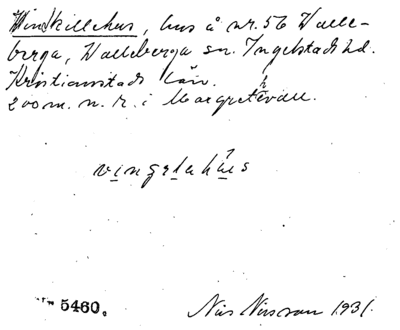 Vindkillehus, hus å nr. 56 Valle-
berga, Valleberga sn. Ingelstads hd.
Kristianstads län.
200 m. n. r. i Margretevall.
vingelahus
5460.
Nils Nilsson 1931.